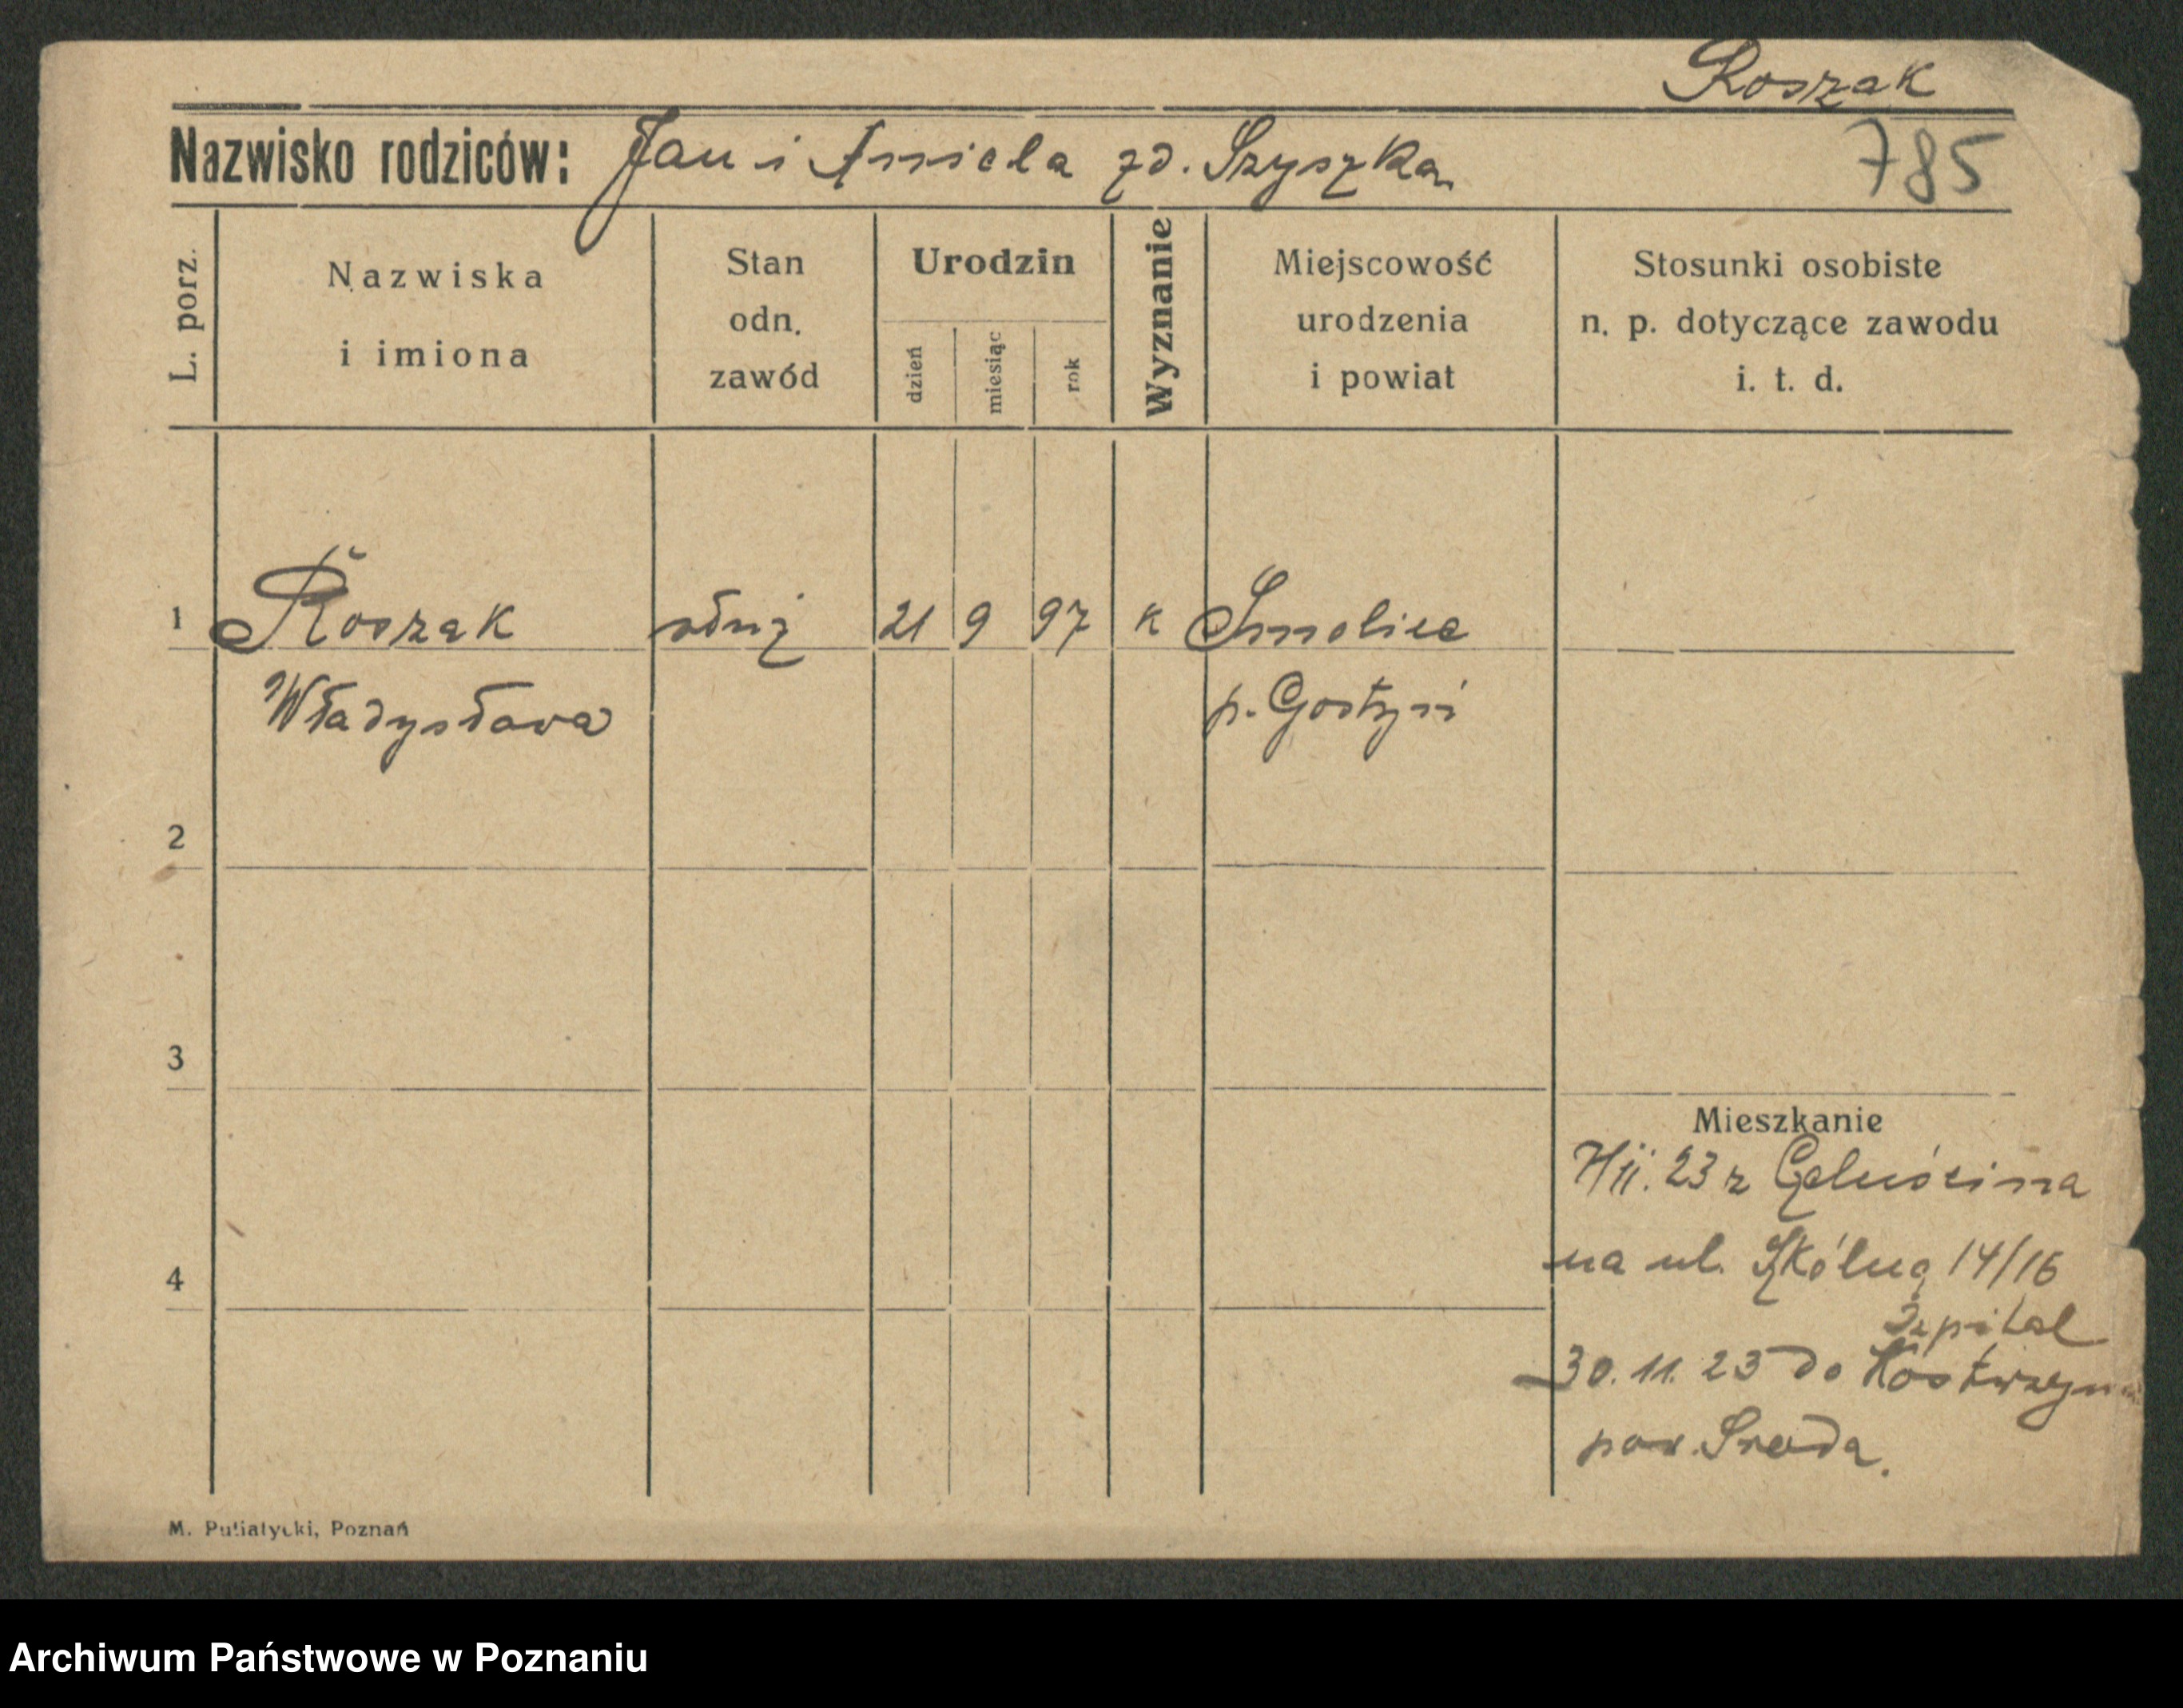 Roszak
Nazwisko rodziców: Jan i Aniela zd. Szyszka
785
L. porz.
Nazwiska
i imiona
Stan
odn.
zawód
Urodzin
dzień
miesiąc
rok
Wyznanie
Miejscowość
urodzenia
i powiat
Stosunki osobiste
n. p. dotyczące zawodu
i. t. d.
1 Roszak służ 21 9 97 K Smolice
Władysława p. Gostyń
2
3
4
Mieszkanie
23 z
na ul. Szkólną 14/16
Szpital
30. 11. 23 do Kostrzyn
pow. Sroda.
M. Putiatycki, Poznań
Archiwum Państwowe w Poznaniu